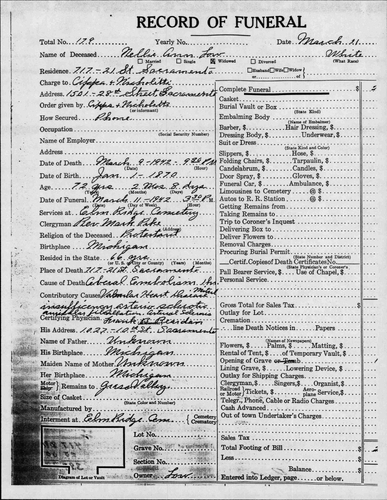 RECORD OF FUNERAL
Total No. 179 Yearly No. Date March 11
Name of Deceased Nellie Ann Low White
Married Single Widowed Divorced (What Race)
Residence 717-21 St Sacramento Husband Wife Widow of
Charge to Cippa & Nicholette
Address 1501-28th Street Sacramento
Order given by Cippa & Nicholette
(or informant)
How Secured Phone
Occupation
(Social Security Number)
Name of Employer
Address
(Date) (Hour)
Date of Death March 9-1942-9 PM
Date of Birth Jan. 1-1870
Age 72 yrs 2 Mos 8 dys
(Years) (Months) (Days)
Date of Funeral March 11-1942
(Date) (Day of Week) (Hour)
Services at Elm Ridge Cemetery
Clergyman Rev Mark
Religion of the Deceased Protestant
Birthplace Michigan
Resided in the State 66 yrs
(or U.S. City or County) (Years) (Months)
Place of Death 717-21 St Sacramento
Cause of Death Cerebral Embolism
Contributory Causes Valvular Heart Disease Mitral
insufficiency
Certifying Physician Frank
His Address 1027-10th St. Sacramento
Name of Father Unknown
His Birthplace Michigan
Maiden Name of Mother Unknown
Her Birthplace Michigan
Motor Body Remains to Grass Valley
Size of Casket
(State Color and Number)
Manufactured by
Interment at Elm Ridge Cem Cemetery Crematory
Lot No.
Grave No.
Section No.
Owner Low
Diagram of Lot or Vault
Complete Funeral $
Casket
Burial Vault or Box
(State Kind)
Embalming Body
(Name of Embalmer)
Barber, $ Hair Dressing, $
Dressing Body, $ Underwear, $
Suit or Dress
(State Kind and Color)
Slippers, $ Hose, $
Folding Chairs, $ Tarpaulin, $
Candelabrum, $ Candles, $
Door Spray, $ Gloves, $
Funeral Car, $ Ambulance, $
Limousines to Cemetery @ $
Autos to R. R. Station @ $
Getting Remains from
Taking Remains to
Trip to Coroner's Inquest
Delivering Box to
Deliver Flowers to
Removal Charges
Procuring Burial Permit
(State Number and District)
Cert. Copies of Death Certificates No.
(State Physician's or Coroner's)
Pall Bearer Service, $ Use of Chapel, $
Personal Service
Gross Total for Sales Tax
Outlay for Lot
Cremation
line Death Notices in Papers
Flowers, $ Palms, $ Matting, $
Rental of Tent, $ of Temporary Vault, $
Opening of Grave or Tomb
Lining Grave, $ Lowering Device, $
Outlay for Shipping Charges
Clergyman, $ Singers, $ Organist, $
Railroad or Motor Tickets, $ Service, $
Telegr., Phone, Cable or Radio Charges
Cash Advanced
Out of town Undertaker's Charges
Sales Tax
Total Footing of Bill $
Less
Balance
Entered into Ledger, page or below.